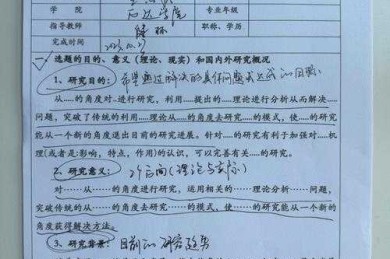 学　　院　　　　　　　学院　专业年级
指导教师　　　　　　　职称、学历
完成时间
一、选题的目的、意义（理论、现实）和国内外研究概况
1、研究目的：希望通过解决的具体问题或达成的目标
从……的角度对…进行研究，利用……提出的……理论进行分析从而解决……
问题，突破了传统的利用……理论从……的角度去研究……的模式，使……的研究能
从一个新的角度退出目前的研究进展。针对……的研究有利于加强对……机
理(或者是:影响，特点，作用)的认识，可以完善有关……的研究。
2、研究意义：2个方向（理论与实际）
对……从……的角度进行研究，运用相关的……理论分析……问题，
突破传统的从……的角度去研究……的模式，使……的研究能从一个新的
角度获得解决方法。
3、研究背景：目前的研究趋势